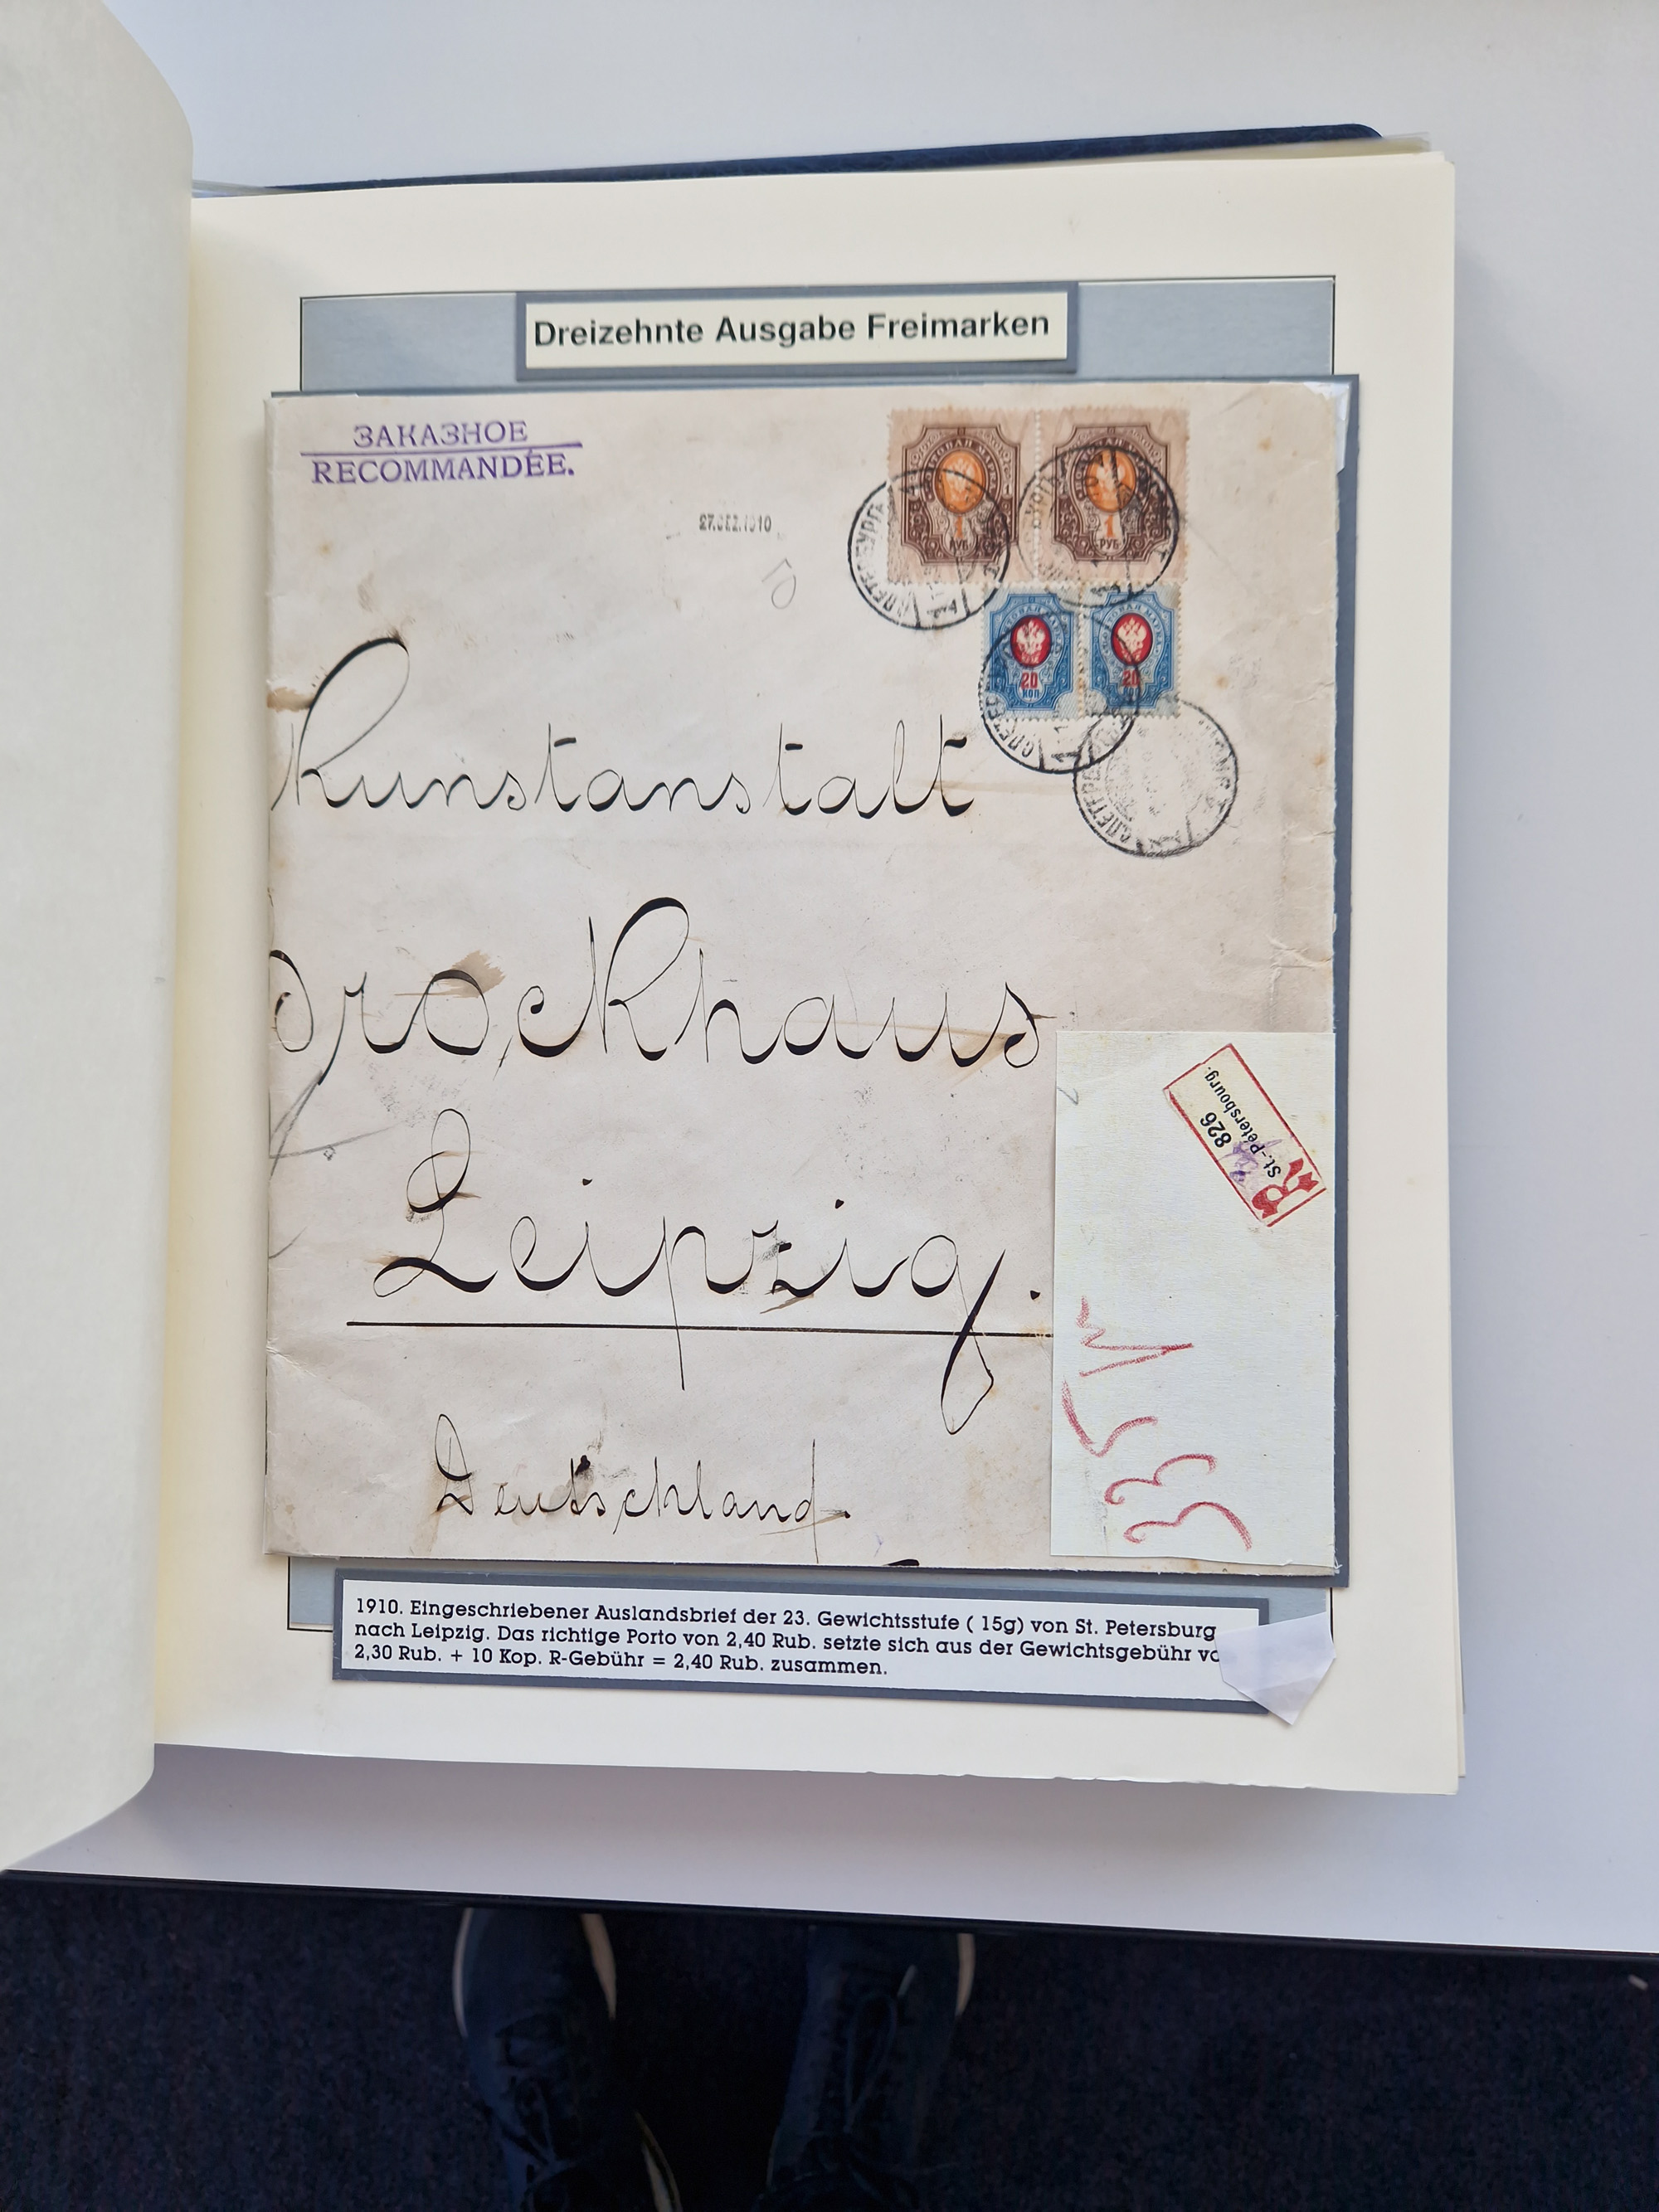 Dreizehnte Ausgabe Freimarken
ЗАКАЗНОЕ
RECOMMANDÉE.
27.DEZ.1910
1
РУБ
1
РУБ
20
КОП
20
КОП
Kunstanstalt
Brockhaus
Leipzig.
Deutschland.
R
826
St.-Pétersbourg.
1910. Eingeschriebener Auslandsbrief der 23. Gewichtsstufe ( 15g) von St. Petersburg
nach Leipzig. Das richtige Porto von 2,40 Rub. setzte sich aus der Gewichtsgebühr
2,30 Rub. + 10 Kop. R-Gebühr = 2,40 Rub. zusammen.